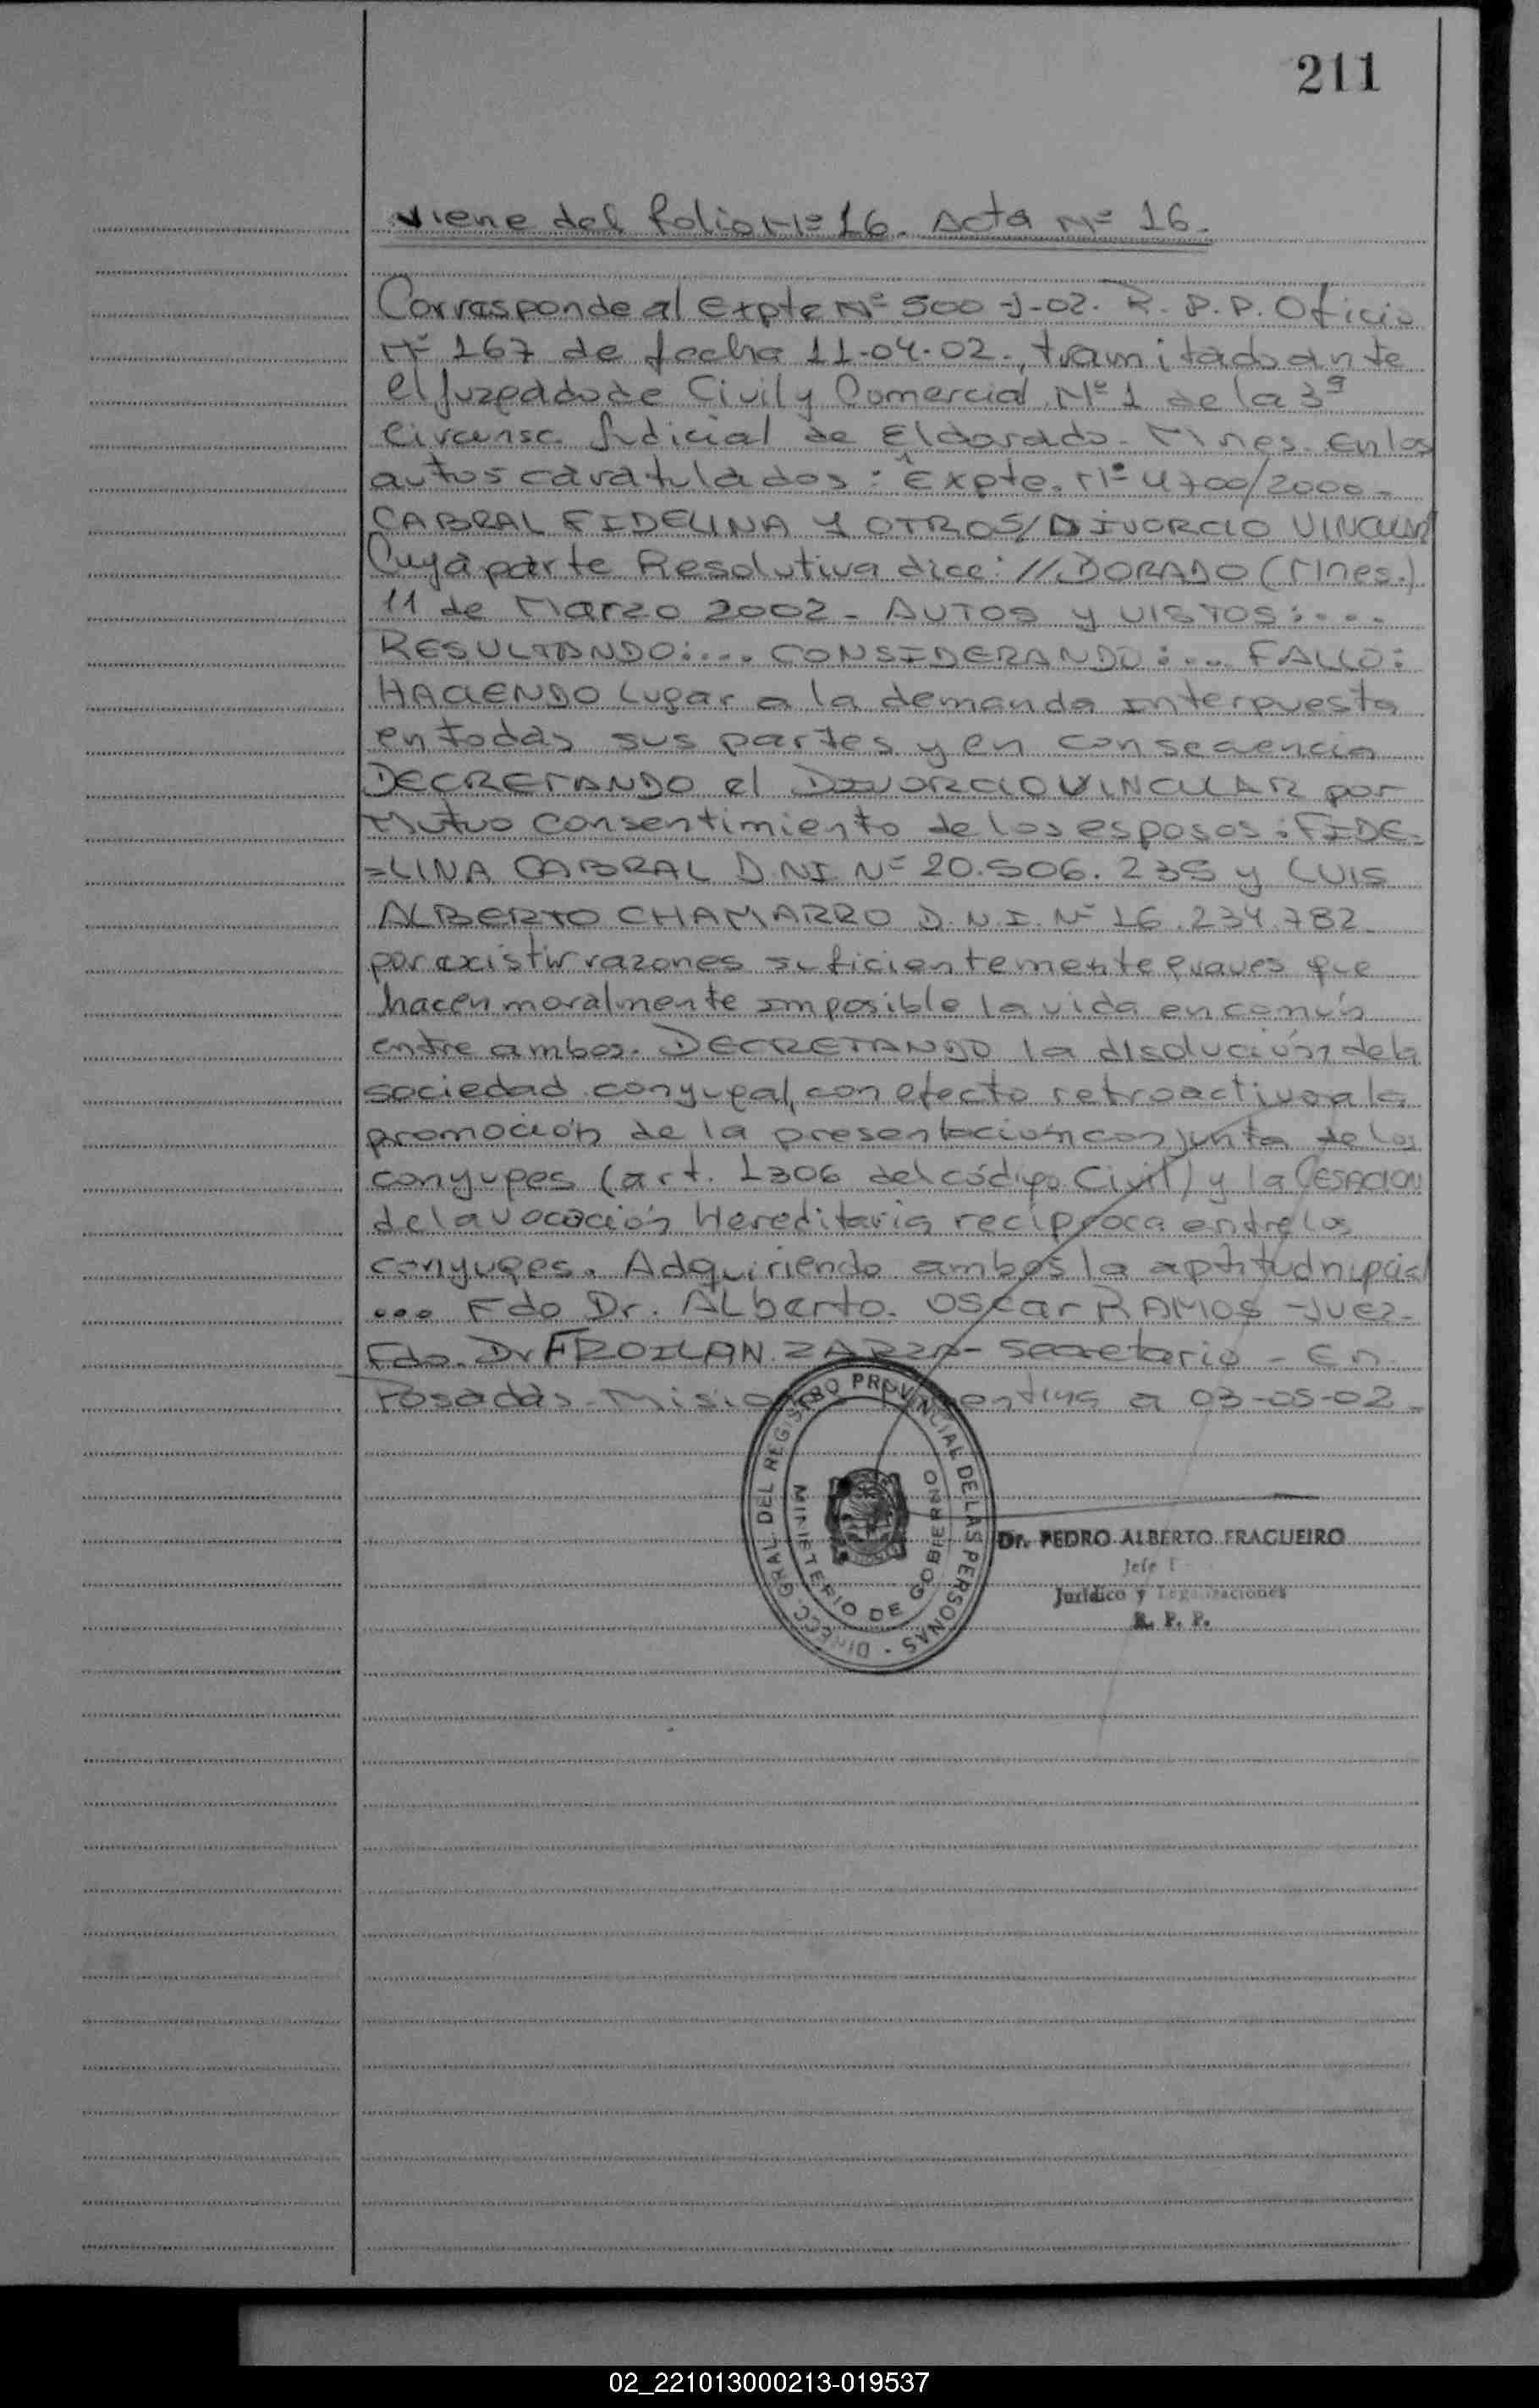 211
Viene del folio Nº 16. Acta Nº 16.
Corresponde al Expte Nº 500-J-02. R.P.P. Oficio
Nº 167 de fecha 11-04-02., tramitado ante
el Juzgado de Civil y Comercial Nº 1 de la 3ª
Circunsc. Judicial de Eldorado - Mnes. En los
autos caratulados: "Expte. Nº 4700/2000 -
CABRAL FIDELINA Y OTROS/DIVORCIO VINCULAR
Cuya parte Resolutiva dice: //DORADO (Mnes.)
11 de Marzo 2002 - AUTOS y VISTOS:....
RESULTANDO:.... CONSIDERANDO:.... FALLO:
HACIENDO Lugar a la demanda interpuesta
en todas sus partes y en consecuencia
DECRETANDO el DIVORCIO VINCULAR por
Mutuo Consentimiento de los esposos: FIDE-
=LINA CABRAL D.NI. Nº 20.506.235 y LUIS
ALBERTO CHAMARRO D.N.I. Nº 16.234.782
por existir razones suficientemente graves que
hacen moralmente imposible la vida en común
entre ambos. DECRETANDO la disolución de la
sociedad conyugal, con efecto retroactivo a la
promoción de la presentación conjunta de los
conyuges (art. 1306 del código Civil) y la CESACION
de la vocación Hereditaria recíproca entre los
conyuges. Adquiriendo ambos la aptitud nupcial
... Fdo Dr. Alberto. Oscar RAMOS - Juez.
Fdo. Dr FROILAN ZARZA - Secretario - En
Posadas - Misiones Argentina a 03-05-02.
DIRECC. GRAL. DEL REGISTRO PROVINCIAL DE LAS PERSONAS -
MINISTERIO DE GOBIERNO
Dr. PEDRO ALBERTO FRAGUEIRO
Jefe
Jurídico y Legalizaciones
R. P. P.
02_221013000213-019537